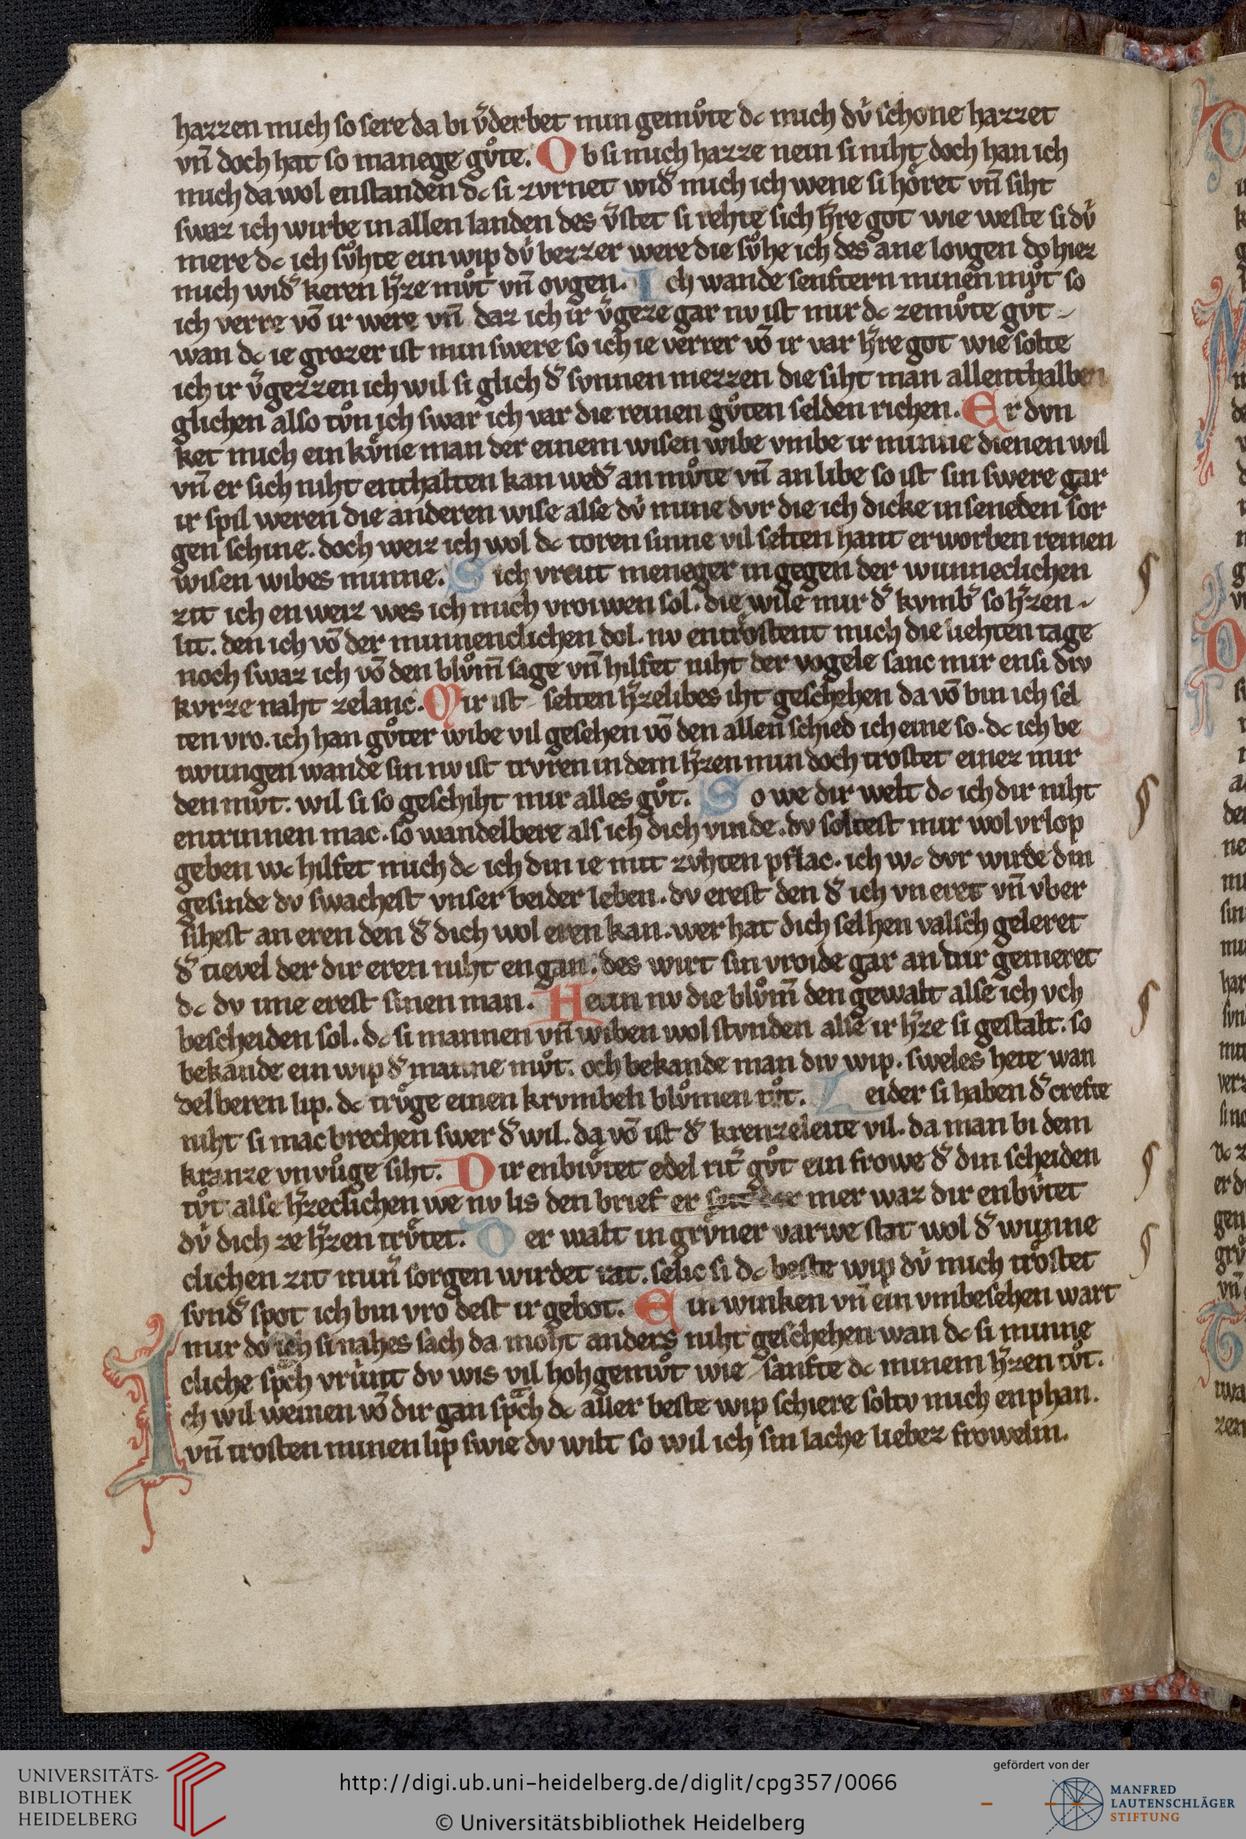 hazzen mich so sere da bi v̓derbet min gemvͦte dc mich dv́ schone hazzet
vn̄ doch hat so manege gvͦte. Ob si mich hazze nein si niht doch han ich
mich da wol enstanden dc si zvrnet wid̓ mich ich wene si hoͤret vn̄ siht
swaz ich wirbe in allen landen des v̓stet si rehte sich h̓re got wie weste si dv́
mere dc ich svͦhte ein wip dv́ bezzer were die svͦhe ich des ane lovgen do hiez
mich wid̓ keren h̓ze mvͦt vn̄ ovgen. Ich wande senftern minen mvͦt so
ich verre vō ir were vn̄ daz ich ir v̓geze gar nv ist mir dc zemvͦte gvͦt
wan dc ie grozer ist min swere so ich ie verrer vō ir var h̓re got wie solte
ich ir v̓gezzen ich wil si glich d̓ svnnen mezzen die siht man allenthalben
glichen also tvͦn ich swar ich var die reinen gvͦten selden richen. Er dvn
ket mich ein kvͤne man der einem wisen wibe vmbe ir minne dienen wil
vn̄ er sich niht enthalten kan wed̓ an mvͦte vn̄ an libe so ist sin swere gar
ir spil weren die anderen wise alse dv́ mine dvr die ich dicke in seneden sor
gen schine. doch weiz ich wol dc toren sinne vil selten hant erworben reinen
wisen wibes minne. Sich vreut meneger ingegen der wunneclichen
zit ich enweiz wes ich mich vroiwen sol. die wile mir d̓ kvmb̓ so h̓zen
lit. den ich vō der minnenclichen dol. nv entroͤstent mich die liehten tage
noch swaz ich vō den blvͦm̄ sage vn̄ hilfet niht der vogele sanc mir ensi div
kvrze naht zelanc. Mir ist selten h̓zelibes iht geschehen da vō bin ich sel
ten vro. ich han gvͦter wibe vil gesehen vō den allen schied ich eine so. dc ich be
twungen wande sin nv ist trvren in dem h̓zen min doch trostet einez mir
den mvͦt. wil si so geschiht mir alles gvͦt. So we dir welt dc ich dir niht
entrinnen mac. so wandelbere als ich dich vinde. dv soltest mir wol vrlop
geben wc hilfet mich dc ich din ie mit zvhten pflac. ich wc dvr wirde din
gesinde dv swachest vnser beider leben. dv erest den d̓ ich vn eret vn̄ vber
sihest an eren den d̓ dich wol eren kan. wer hat dich selhen valsch geleret
d̓ tievel der dir eren niht engan. des wirt sin vroide gar an dir gemeret
dc dv ime erest sinen man. Hetin nv die blvͦm̄ den gewalt alse ich vch
bescheiden sol. dc si mannen vn̄ wiben wol stvnden alse ir h̓ze si gestalt. so
bekande ein wip d̓ manne mvͦt. och bekande man div wip. sweles hete wan
delberen lip. dc trvͤge einen krvmben blvͦmen rot. Leider si haben d̓ crefte
niht si mac brechen swer d̓ wil. da vō ist d̓ krenzeleite vil. da man bi dem
kranze vnvuͦge siht. Dir enbvͤtet edel rit̓ gvͦt ein frowe d̓ din scheiden
tvͦt alse h̓zeclichen we nv lis den brief er mer waz dir enbv́tet
dv́ dich ze h̓zen trvͤtet. Der walt in grvͤner varwe stat wol d̓ wunne
clichen zit min̓ sorgen wirdet rat. selic si dc beste wip dv́ mich troͤstet
svnd̓ spot ich bin vro dest ir gebot. Ein winken vn̄ ein vmbesehen wart
mir do ich si nahes sach da moht anders niht geschehen wan dc si minne
cliche spͣch vrúnt dv wis vil hohgemvͦt wie sanfte dc minem h̓zen tvͦt.
Ich wil weinen vō dir gan spͣch dc aller beste wip schiere soltv mich enphan.
vn̄ trosten minen lip swie dv wilt so wil ich sin lache liebez frowelin.
UNIVERSITÄTS-
BIBLIOTHEK
HEIDELBERG
http://digi.ub.uni-heidelberg.de/diglit/cpg357/0066
© Universitätsbibliothek Heidelberg
gefördert von der
MANFRED
LAUTENSCHLÄGER
STIFTUNG